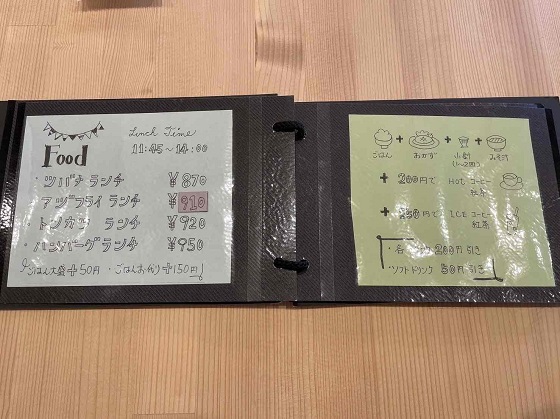 Lunch Time
Food 11:45~14:00
・ツバチランチ ¥870
・アジフライランチ ¥910
・トンカツ ランチ ¥920
・ハンバーグランチ ¥950
ごはん大盛+50円 ・ごはんおかわり+150円
+ + +
ごはん おかず 小鉢 みそ汁
(1~2コ)
+ 200円で HOTコーヒー
紅茶
+ 250円で ICEコーヒー
紅茶
・各 200円引き
・ソフトドリンク 50円引き